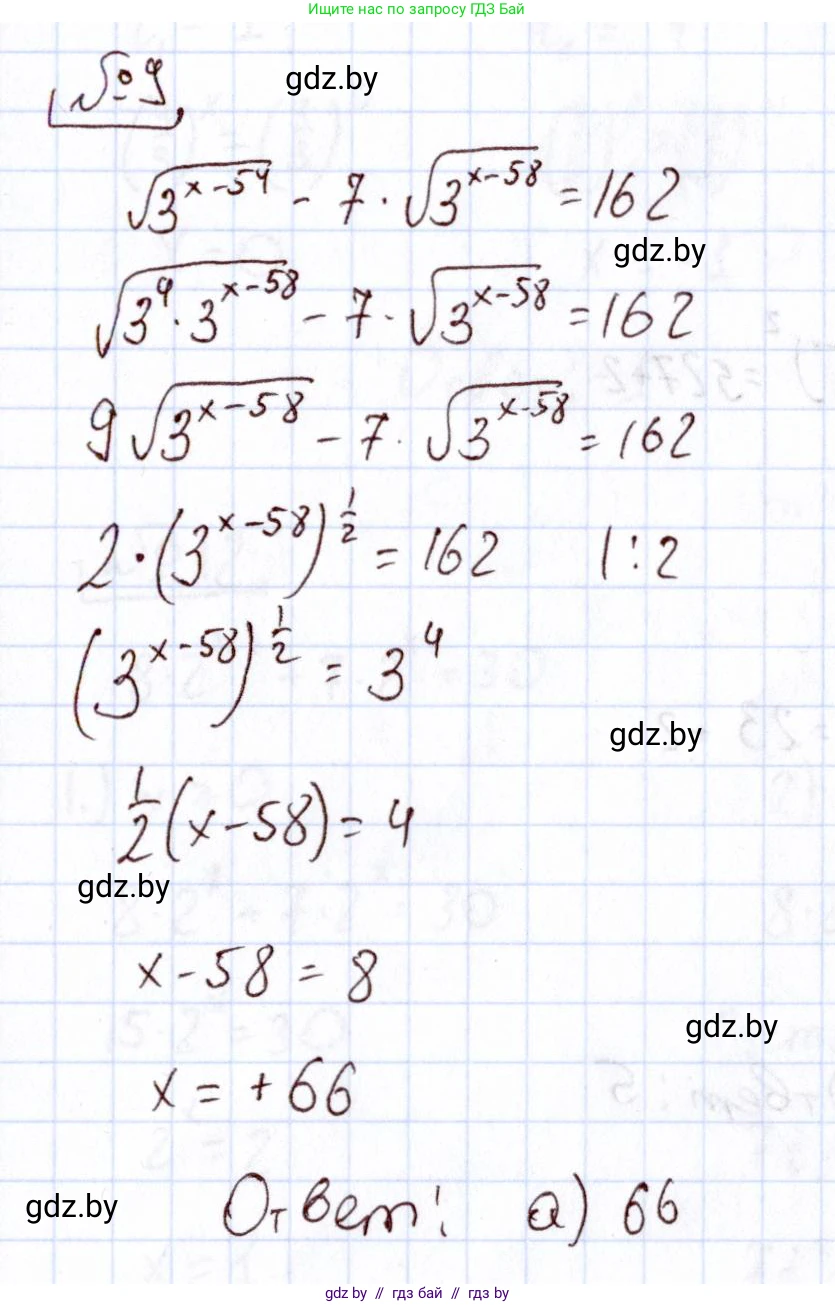 Ищите нас по запросу ГДЗ Бай
№9
gdz.by
√(3^(x-54)) - 7 · √(3^(x-58)) = 162
gdz.by
√(3^4 · 3^(x-58)) - 7 · √(3^(x-58)) = 162
9√(3^(x-58)) - 7 · √(3^(x-58)) = 162
2 · (3^(x-58))^(1/2) = 162 | : 2
(3^(x-58))^(1/2) = 3^4
gdz.by
1/2 (x - 58) = 4
gdz.by
x - 58 = 8
gdz.by
x = + 66
gdz.by
Ответ: а) 66
gdz.by // гдз бай // гдз by